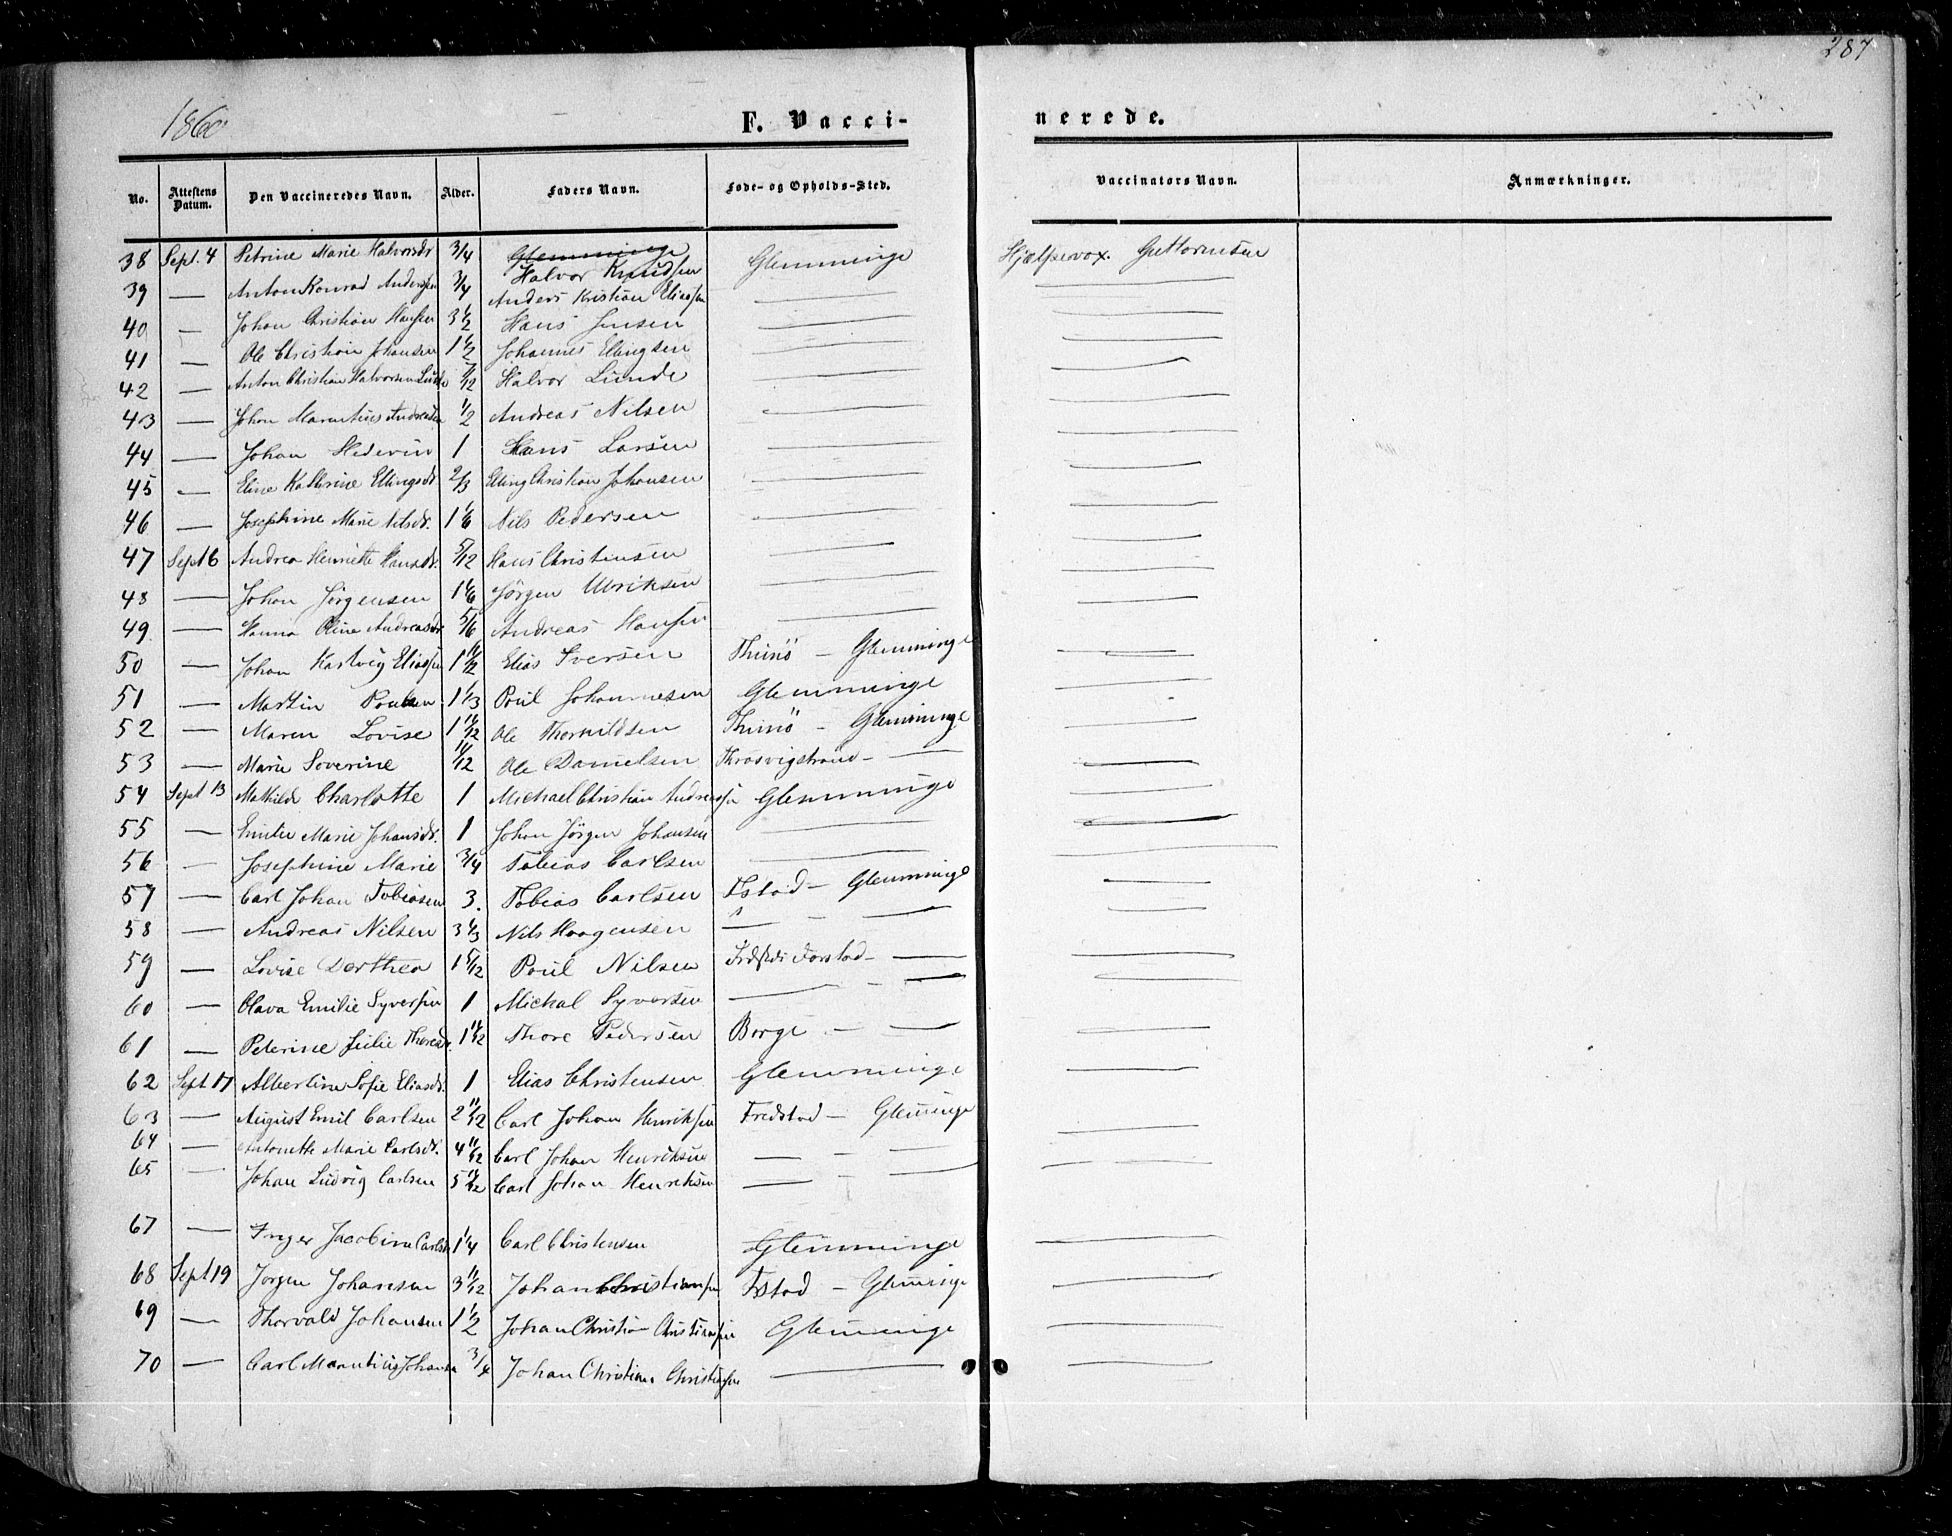 287
1860
F. Vacci-nerede.
No. Attestens Datum. Den Vaccineredes Navn. Alder. Faders Navn. Føde- og Opholds-Sted. Vaccinators Navn. Anmærkninger.
38 Sept. 4 Petrine Marie Halvorsdr 3/4 Glemminge Halvor Knudsen Glemminge Hjælpevax. Guttormsen
39 — Anton Konrad Andersen 3/4 Anders Kristian Eliassen — —
40 — Johan Christian Hansen 3 1/2 Hans Jensen — —
41 — Ole Christian Johansen 1 1/2 Johannes Ellingsen — —
42 — Anton Christian Halvorsen Lunde 7/12 Halvor Lunde — —
43 — Johan Marentius Andreasen 1/2 Andreas Nilsen — —
44 — Johan Hedevin 1 Hans Larsen — —
45 — Eline Kathrine Ellingsdr 2/3 Elling Christian Johansen — —
46 — Josephine Marie Nilsdr. 1 1/6 Nils Pedersen — —
47 Sept 6 Andrea Henriette Hansdr. 5/12 Hans Christensen — —
48 — Johan Jørgensen 1 1/6 Jørgen Ulriksen — —
49 — Hanna Oline Andreasdr 5/6 Andreas Hansen — —
50 — Johan Hartvig Eliassen 1 1/2 Elias Iversen Thunö — Glemminge —
51 — Martin Poulsen 1 1/3 Poul Johannesen Glemminge —
52 — Maren Lovise 1 1/12 Ole Thorkildsen Thunö — Glemminge —
53 — Marie Severine 11/12 Ole Danielsen Kraavigstrand — — —
54 Sept 13 Mathilde Charlotte 1 Michael Christian Andreassen Glemminge —
55 — Emilie Marie Johansdr. 1 Johan Jørgen Johansen — —
56 — Josephine Marie 3/4 Tobias Carlsen — —
57 — Carl Johan Tobiasen 3. Tobias Carlsen Fstad — Glemminge —
58 — Andreas Nilsen 3 1/3 Nils Haagensen — — — —
59 — Lovise Dorthea 1 5/12 Poul Nilsen Fredsts Forstad — — —
60 — Olava Emilie Syversen 1 Mickal Syversen — — — —
61 — Peterine Julie Thoresdr. 1 11/12 Thore Pedersen Borge — — —
62 Sept 17 Albertine Sofie Eliasdr. 1 Elias Christensen Glemminge —
63 — August Emil Carlsen 2 11/12 Carl Johan Henriksen Fredstad — Glemminge
64 — Antonette Marie Carlsdr. 4 11/12 Carl Johan Henriksen — — — —
65 — Johan Ludvig Carlsen 5 11/12 Carl Johan Henriksen — — — —
67 — Inger Jacobine Carlsdr 1 1/4 Carl Christensen Glemminge —
68 Sept 19 Jørgen Johansen 3 11/12 Johan Christiansen Fstad — Glemminge —
69 — Thorvald Johansen 1 1/2 Johan Christian Christiansen Glemminge —
70 — Carl Marentius Johansen 3/4 Johan Christian Christiansen — —